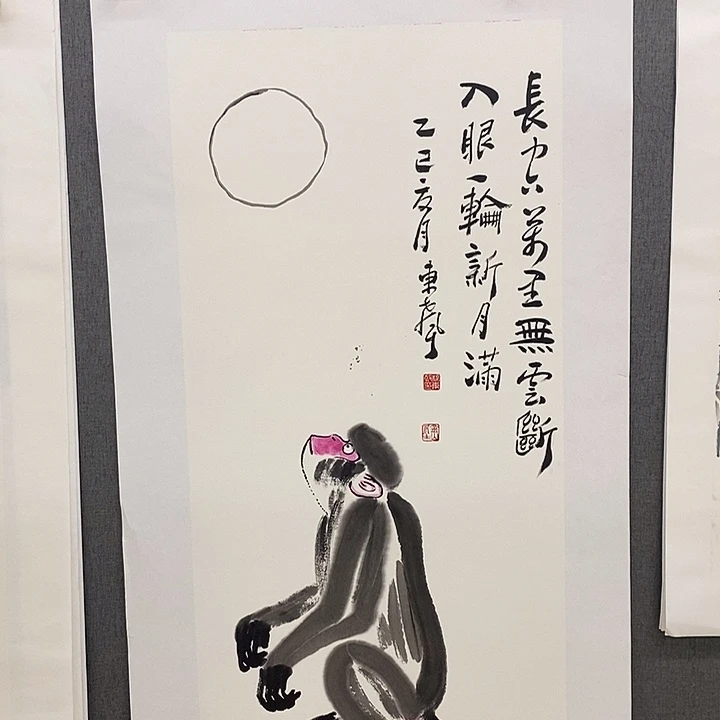 長空万里無雲斷
入眼一輪新月滿
乙巳亥月 東